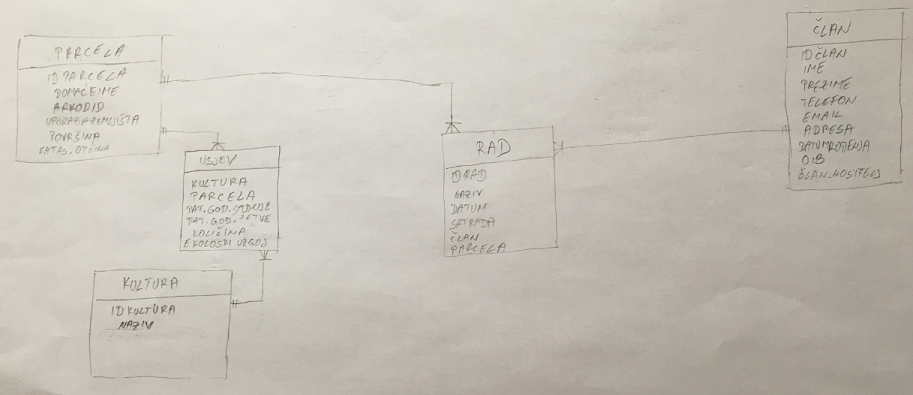 PARCELA
IDPARCELA
DOMAĆEIME
ARKODID
UPORABAZEMLJIŠTA
POVRŠINA
KATAS.OPĆINA
USJEV
KULTURA
PARCELA
DAT.GOD.SADNJE
DAT.GOD.ŽETVE
KOLIČINA
EKOLOŠKI UZGOJ
KULTURA
IDKULTURA
NAZIV
RAD
IDRAD
NAZIV
DATUM
SATIRADA
ČLAN
PARCELA
ČLAN
IDČLAN
IME
PREZIME
TELEFON
EMAIL
ADRESA
DATUMROĐENJA
OIB
ČLAN_NOSITELJ